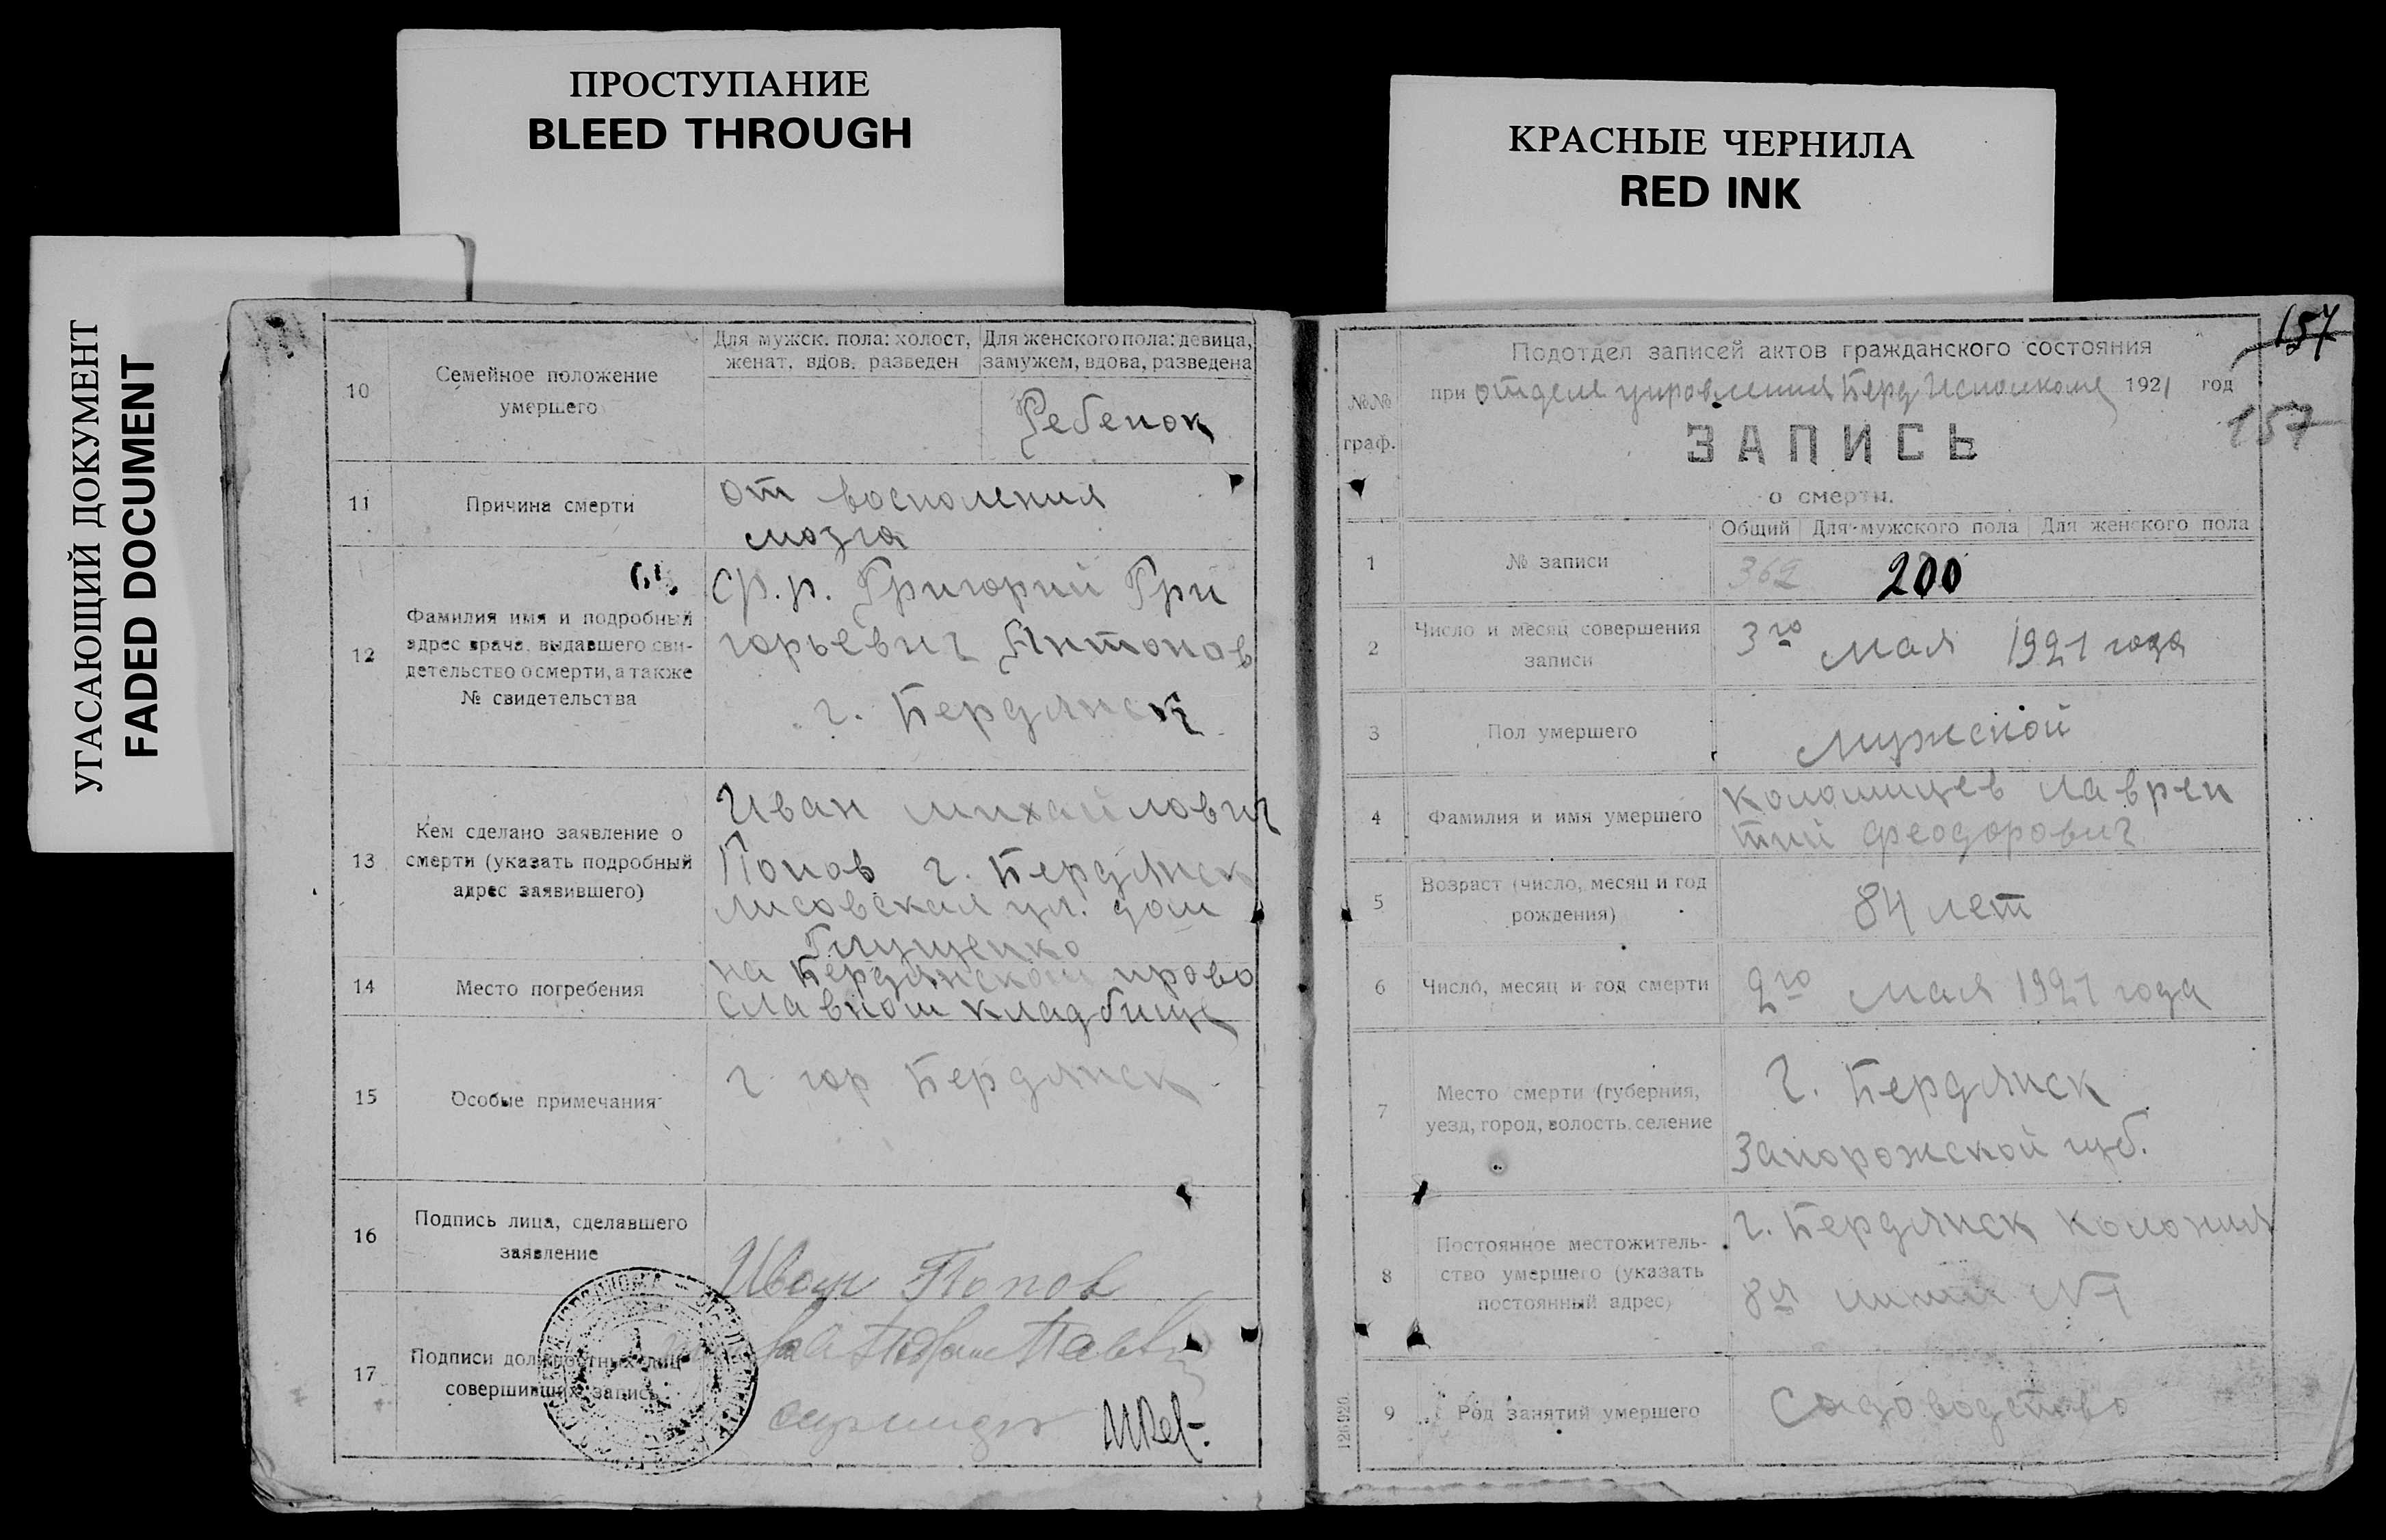 ПРОСТУПАНИЕ
BLEED THROUGH
КРАСНЫЕ ЧЕРНИЛА
RED INK
УГАСАЮЩИЙ ДОКУМЕНТ
FADED DOCUMENT
10
Семейное положение
умершего
Для мужск. пола: холост,
женат, вдов, разведен
Для женского пола: девица,
замужем, вдова, разведена
Ребенок
11
Причина смерти
от воспаления
мозга
12
Фамилия имя и подробный
адрес врача, выдавшего сви-
детельство о смерти, а также
№ свидетельства
Григорий Гри
горьевич Антонов
г. Бердянск
13
Кем сделано заявление о
смерти (указать подробный
адрес заявившего)
Иван михайлович
Попов г. Бердянск
Лисовская ул. дом
Глущенко
14
Место погребения
на Бердянском право
славном кладбище
15
Особые примечания
г. гор Бердянск
16
Подпись лица, сделавшего
заявление
Иван Попов
17
Подписи должностных лиц
совершивших запись
157
№№
граф.
Подотдел записей актов гражданского состояния
при отделе управления Берд Исполкома 1921 год
157
ЗАПИСЬ
о смерти.
1
№ записи
Общий
Для мужского пола
Для женского пола
362
200
2
Число и месяц совершения
записи
3го мая 1921 года
3
Пол умершего
мужской
4
Фамилия и имя умершего
Коломицев Лаврен
тий Феодорович
5
Возраст (число, месяц и год
рождения)
84 лет
6
Число, месяц и год смерти
2го мая 1921 года
7
Место смерти (губерния,
уезд, город, волость, селение
г. Бердянск
Запорожской губ.
8
Постоянное местожитель-
ство умершего (указать
постоянный адрес)
г. Бердянск колония
8я линия №
9
Род занятий умершего
Садоводство